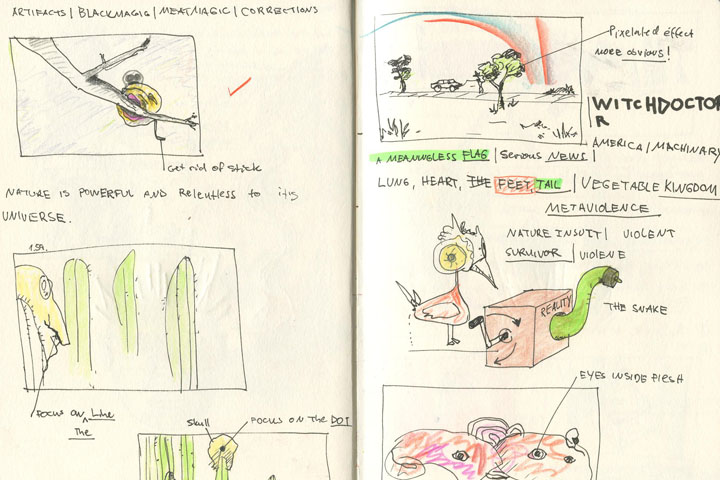 ARTIFACTS | BLACKMAGIC | MEATMAGIC | CORRECTIONS
Get rid of stick
NATURE IS POWERFUL AND Relentless to its
UNIVERSE.
FOCUS ON Line
The
Skull
FOCUS ON THE DOT
Pixelated effect
MORE OBVIOUS!
WITCHDOCTOR
R
AMERICA / MACHINARY
A MEANINGLESS FLAG | Serious NEWS |
LUNG, HEART, THE FEET, TAIL | VEGETABLE KINGDOM
METAVIOLENCE
NATURE INSUIT | VIOLENT
SURVIVOR | VIOLENE
REALITY
THE SNAKE
EYES INSIDE FLESH